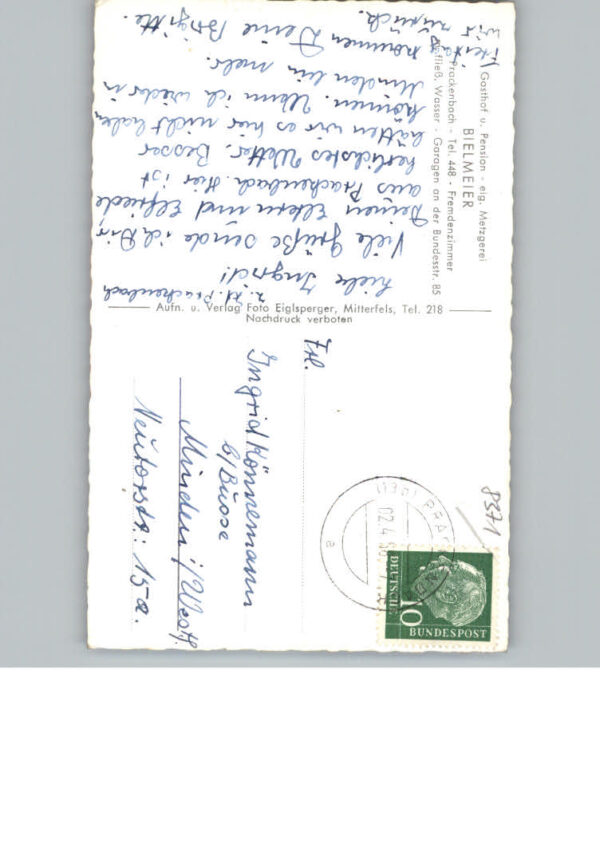 Gasthof u. Pension - eig. Metzgerei
BIELMEIER
Prackenbach - Tel. 448 - Fremdenzimmer
fließ. Wasser - Garagen an der Bundesstr. 85
z. Zt. Prackenbach
Liebe Ingrid!
Viele Grüße sende ich Dir
Deinen Eltern und Elfriede
aus Prackenbach. Hier ist
herlichstes Wetter. Besser
hätten wir es hier nicht haben
können. Wenn ich wieder in
Minden bin mehr.
Freitag kommen Deine Brigitte.
wir zurück.
Aufn. u. Verlag Foto Eiglsperger, Mitterfels, Tel. 218
Nachdruck verboten
Frl.
Ingrid Könnemann
b/Busse
Minden i/Westf.
Neutorstr. 15a.
8371
(13b) PRAC
02.4.5
a
10
DEUTSCHE
BUNDESPOST